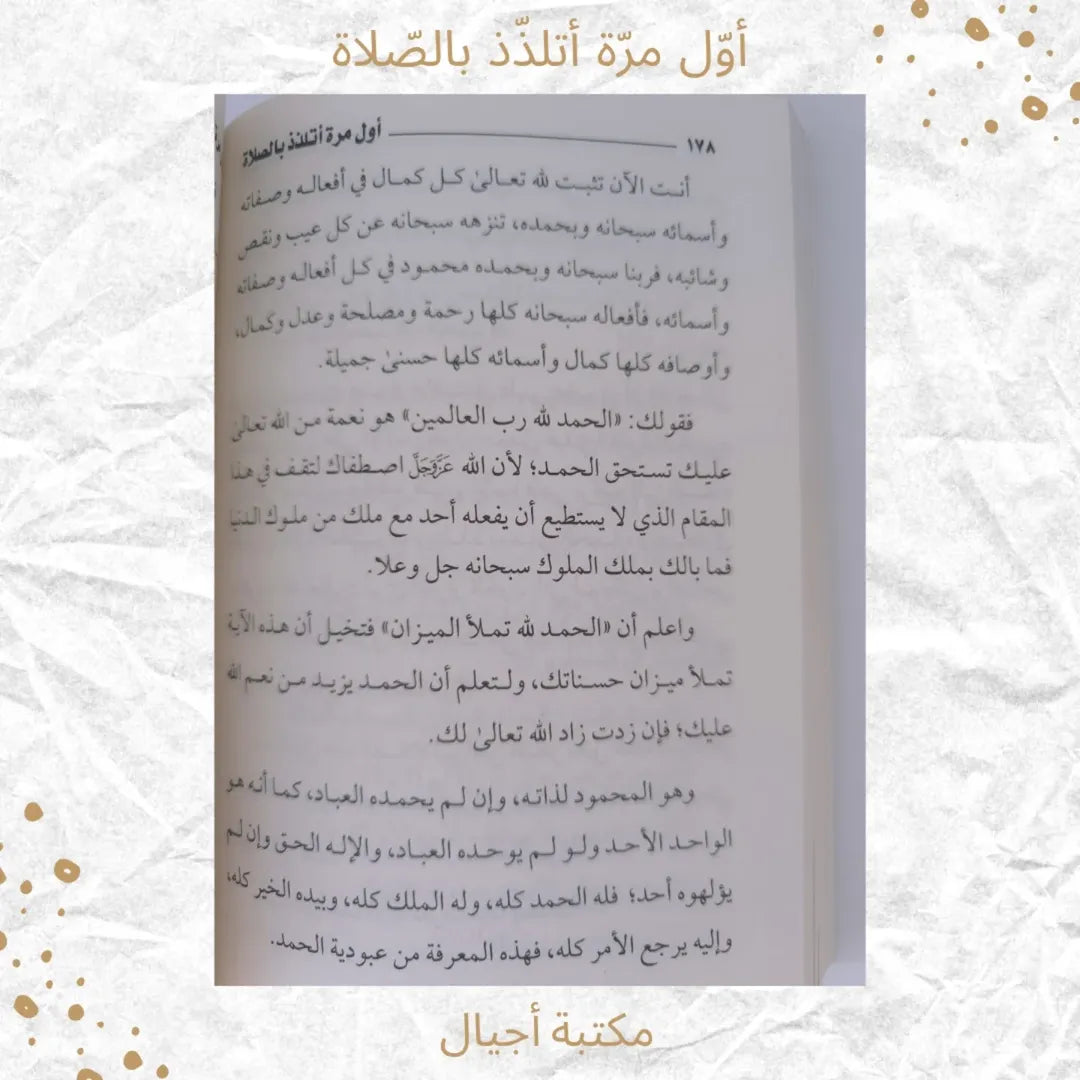 أوّل مرّة أتلذّذ بالصّلاة
١٧٨ أول مرة أتلذذ بالصلاة
أنت الآن تثبت لله تعالىٰ كل كمال في أفعاله وصفاته
وأسمائه سبحانه وبحمده، تنزهه سبحانه عن كل عيب ونقص
وشائبه، فربنا سبحانه وبحمده محمود في كل أفعاله وصفاته
وأسمائه، فأفعاله سبحانه كلها رحمة ومصلحة وعدل وكمال،
وأوصافه كلها كمال وأسمائه كلها حسنىٰ جميلة.
فقولك: «الحمد لله رب العالمين» هو نعمة من الله تعالىٰ
عليك تستحق الحمد؛ لأن الله عَزَّوَجَلَّ اصطفاك لتقف في هذا
المقام الذي لا يستطيع أن يفعله أحد مع ملك من ملوك الدنيا
فما بالك بملك الملوك سبحانه جل وعلا.
واعلم أن «الحمد لله تملأ الميزان» فتخيل أن هذه الآية
تملأ ميزان حسناتك، ولتعلم أن الحمد يزيد من نعم الله
عليك؛ فإن زدت زاد الله تعالىٰ لك.
وهو المحمود لذاته، وإن لم يحمده العباد، كما أنه هو
الواحد الأحد ولو لم يوحده العباد، والإله الحق وإن لم
يؤلهوه أحد؛ فله الحمد كله، وله الملك كله، وبيده الخير كله،
وإليه يرجع الأمر كله، فهذه المعرفة من عبودية الحمد.
مكتبة أجيال